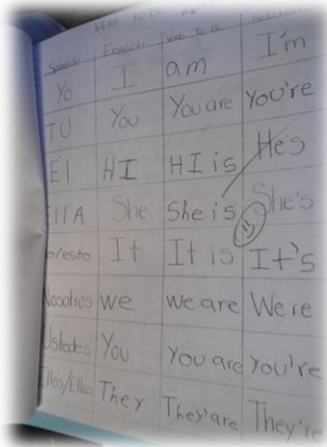 VERB TO BE
Spanish English Verb To Be
Yo I am I'm
TU You You are You're
El HI HI is He's
EllA She She is She's
lo/esto It It is It's
Nosotros we we are We're
Ustedes You You are you're
Ellos/Ellas They They are They're